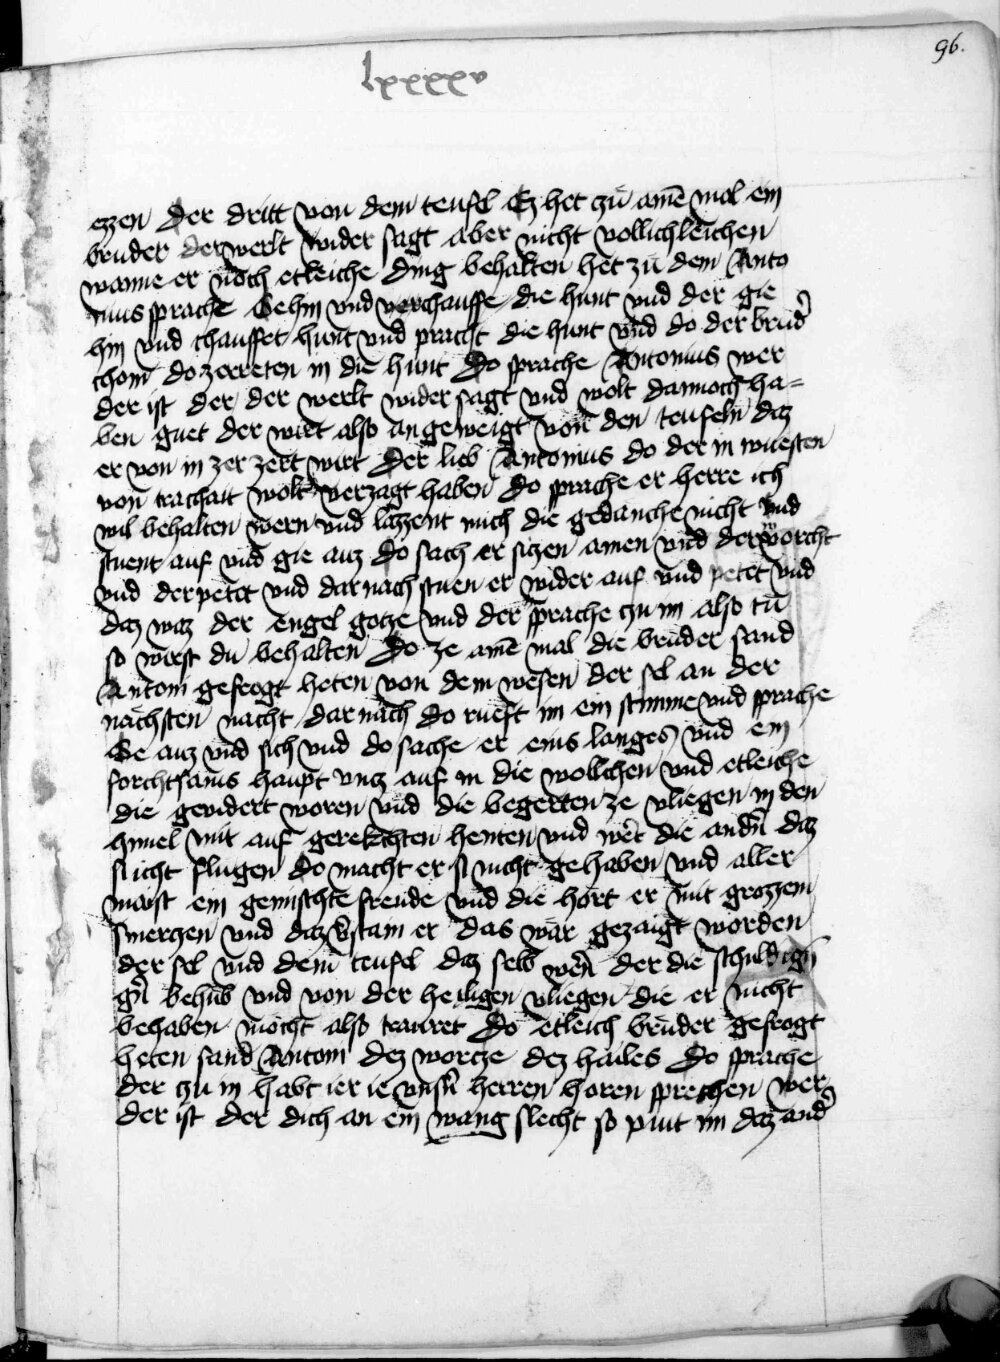 96.
lxxxxv
ezzen Der dritt von dem teufel Ez het zu ainē mol ein
bruder der werlt wider sagt aber nicht vollichleichen
wanne er noch etleiche ding behalten het zu dem Anto
nius sprache Gehin vnd verchauffe die hunt vnd der gie
hin vnd chauffet hunt vnd pracht die hunt vnd do der brud̉
chom do zerreten in die hunt Do sprache Antonius wer
der ist der der werlt wider sagt vnd wolt dannoch ha=
ben guet der wirt also angeweigt von den teufeln daz
er von in zer zert wirt Der lieb Antonius do der in wuesten
von trachait wolt verzagt haben Do sprache er herre ich
wil behalten wern vnd lazzent mich die gedanche nicht vnd
stuent auf vnd gie auz Do sach er sizen ainen vnd der worcht
vnd der petet vnd dar nach stuen er wider auf vnd petet vnd
daz waz der engel gotze vnd der sprache zu im also tū
so wirst du behalten Do ze ainē mal die bruder sand
Antoni gefrogt heten von dem wesen der sel an der
nachsten nacht dar nach do rueft im ein stimme vnd sprache
Ge auz vnd sich vnd do sache er eins langes vnd ein
forchtsams haupt vntz auf in die wollichen vnd etleiche
die gevidert woren vnd die begerten ze vliegen in den
himel mit auf gerekchten henten vnd wert die andn̄ daz
si icht flugen Do macht er si nicht gehaben vnd aller
maist ein gemischte freude vnd die hort er mit grozzem
smerczen vnd daz v̉stain er das war gezaigt worden
der sel vnd dem teufel daz selb wern̄ der die schuldign̄
gn̄ behub vnd von der heiligen vliegen die er nicht
behaben mocht also trauret Do etleich bruder gefrogt
heten sand Antoni dez wortze dez hailes Do sprache
der zu in habt ier ie vnsn̄ herren horen sprechen wer
der ist der dich an ein wang slecht so piut im daz and̉